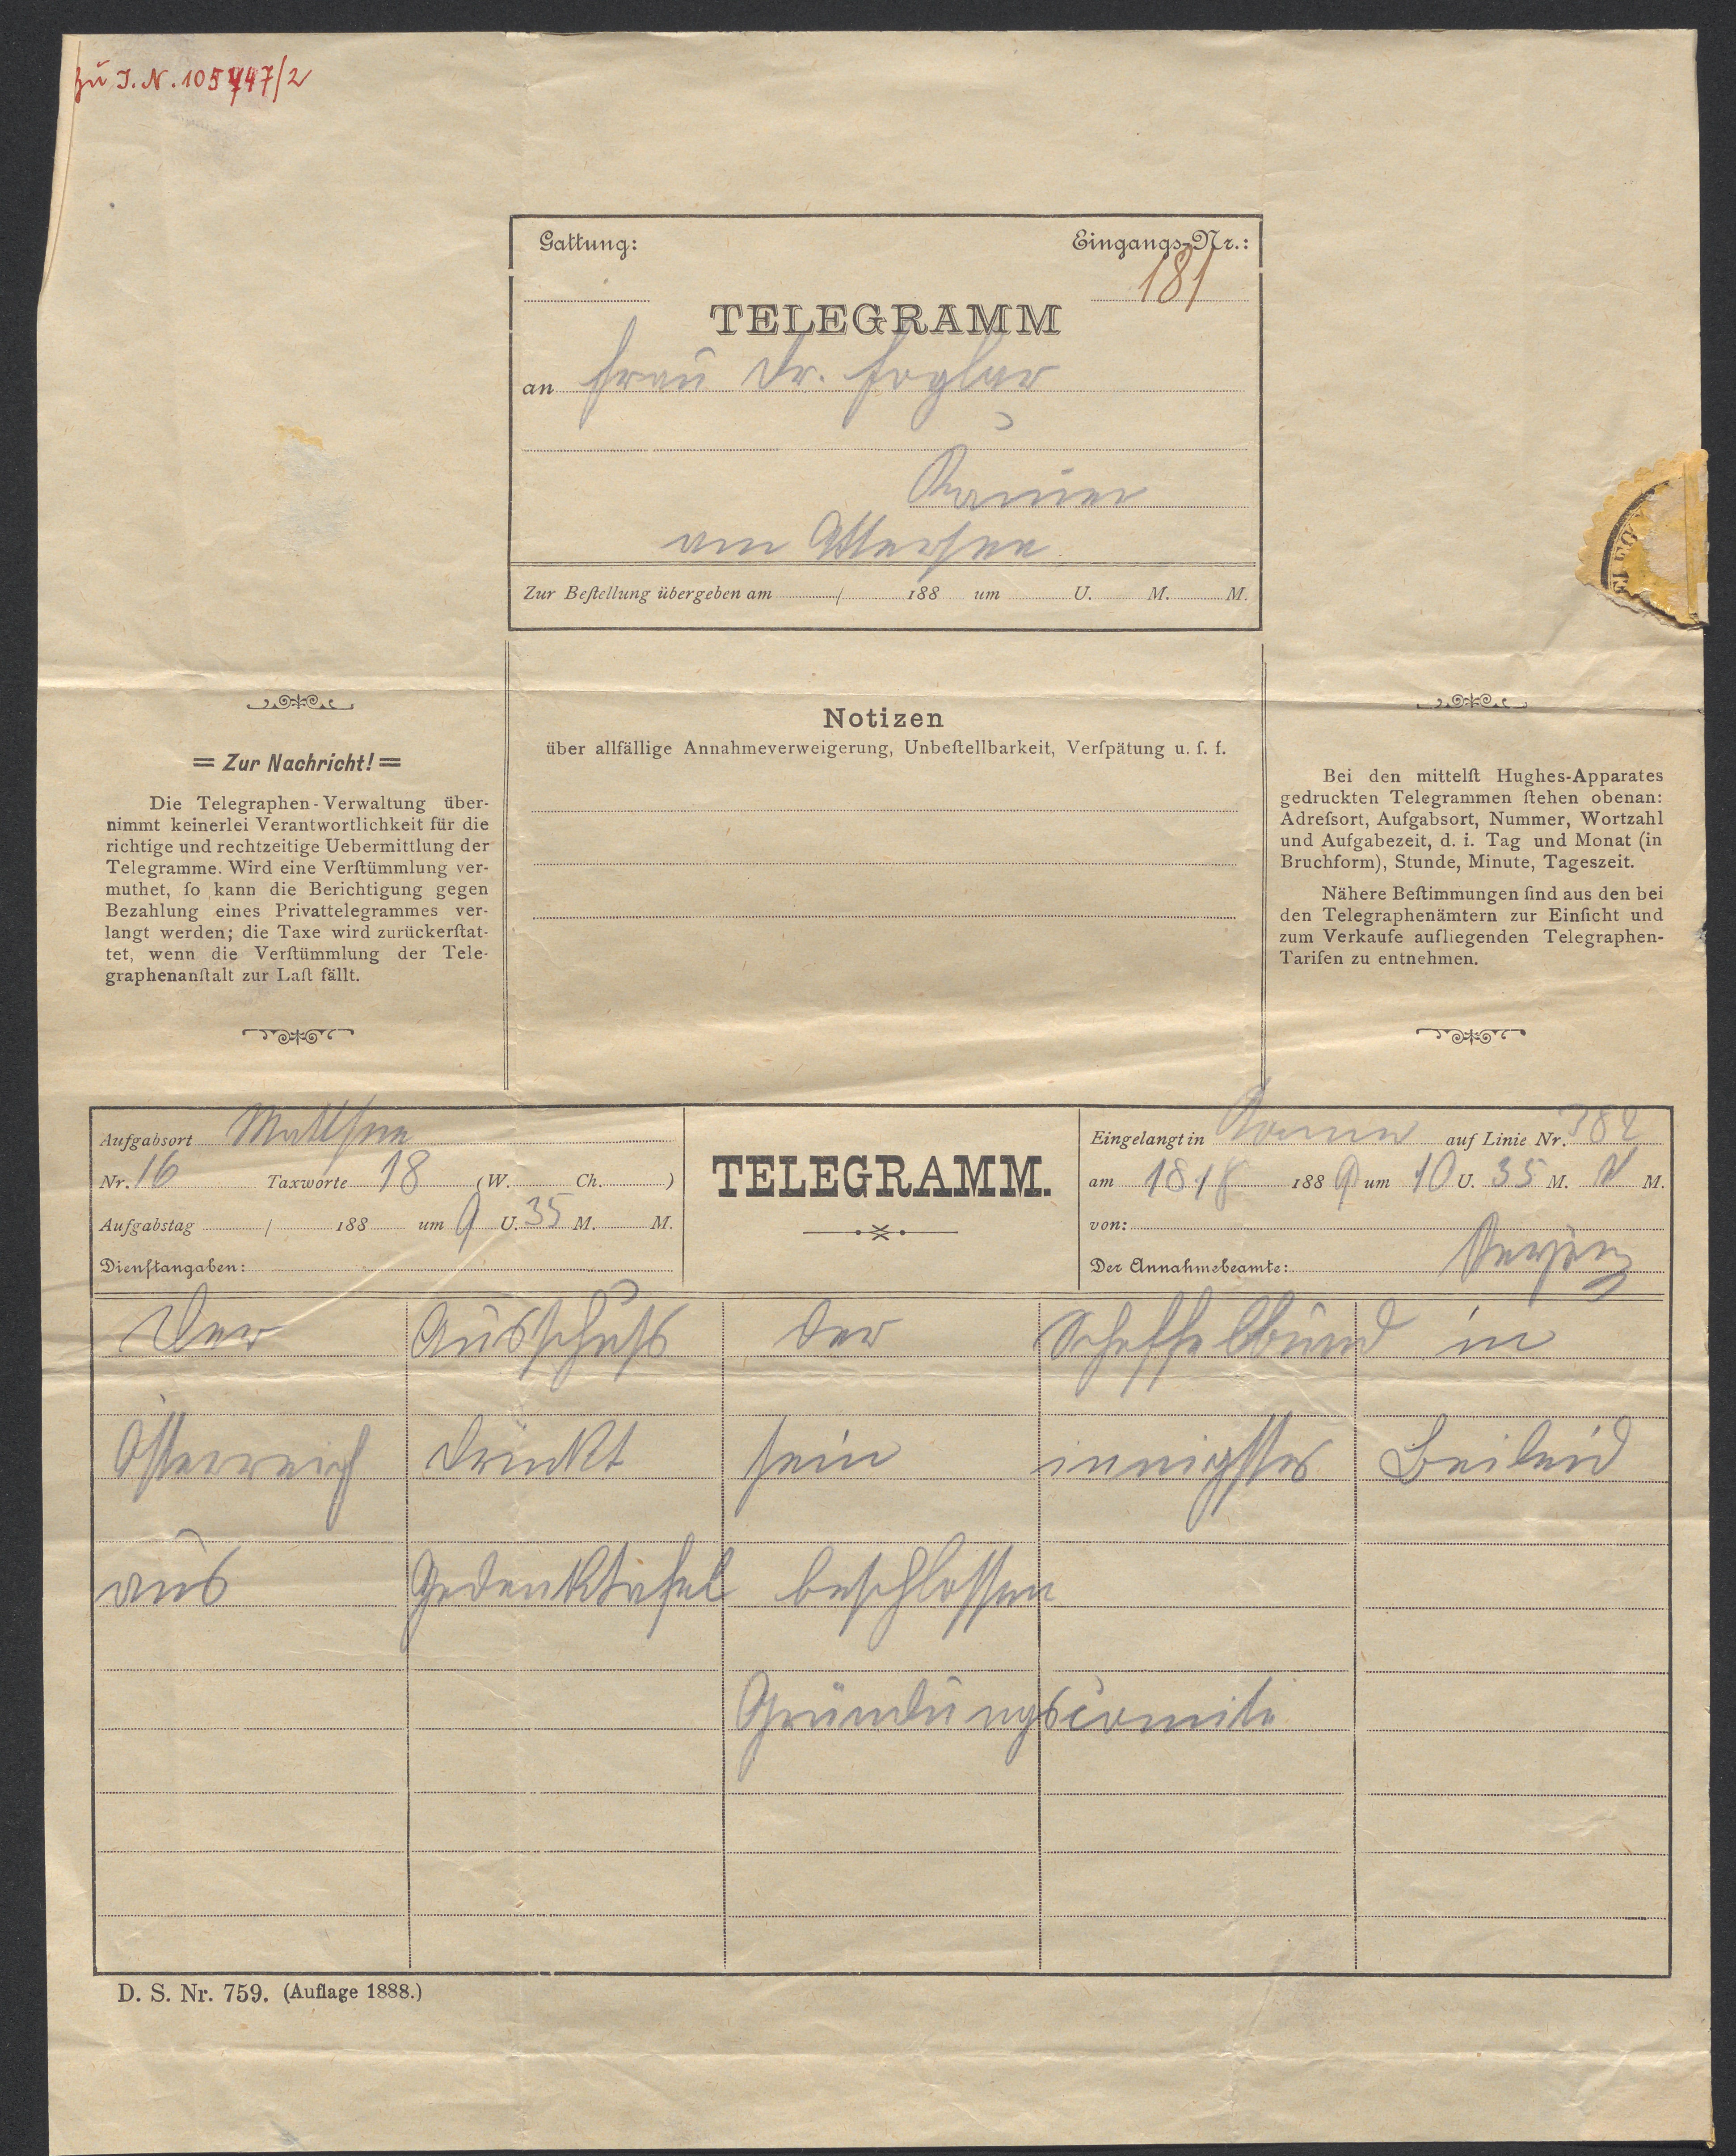 zu I.N. 105747/2
Gattung: Eingangs-Nr.:
181
TELEGRAMM
an Frau Dr. Foglar
am Attersee
Zur Beſtellung übergeben am / 188 um U. M. M.
= Zur Nachricht! =
Die Telegraphen-Verwaltung über-
nimmt keinerlei Verantwortlichkeit für die
richtige und rechtzeitige Uebermittlung der
Telegramme. Wird eine Verſtümmlung ver-
muthet, ſo kann die Berichtigung gegen
Bezahlung eines Privattelegrammes ver-
langt werden; die Taxe wird zurückerſtat-
tet, wenn die Verſtümmlung der Tele-
graphenanſtalt zur Laſt fällt.
Notizen
über allfällige Annahmeverweigerung, Unbeſtellbarkeit, Verſpätung u. ſ. f.
Bei den mittelſt Hughes-Apparates
gedruckten Telegrammen ſtehen obenan:
Adreſsort, Aufgabsort, Nummer, Wortzahl
und Aufgabezeit, d. i. Tag und Monat (in
Bruchform), Stunde, Minute, Tageszeit.
Nähere Beſtimmungen ſind aus den bei
den Telegraphenämtern zur Einſicht und
zum Verkaufe aufliegenden Telegraphen-
Tarifen zu entnehmen.
Aufgabsort Mattsee
Nr. 16 Taxworte 18 (W. Ch. )
Aufgabstag / 188 um 9 U. 35 M. M.
Dienſtangaben:
TELEGRAMM.
Eingelangt in auf Linie Nr. 382
am 18/8 1889 um 10 U. 35 M. M.
von:
Der Annahmebeamte:
Der Ausschuss der Scheffelbund in
Österreich drückt sein innigstes Beileid
aus Gedenktafel beschlossen
Gründungscomite
D. S. Nr. 759. (Auflage 1888.)